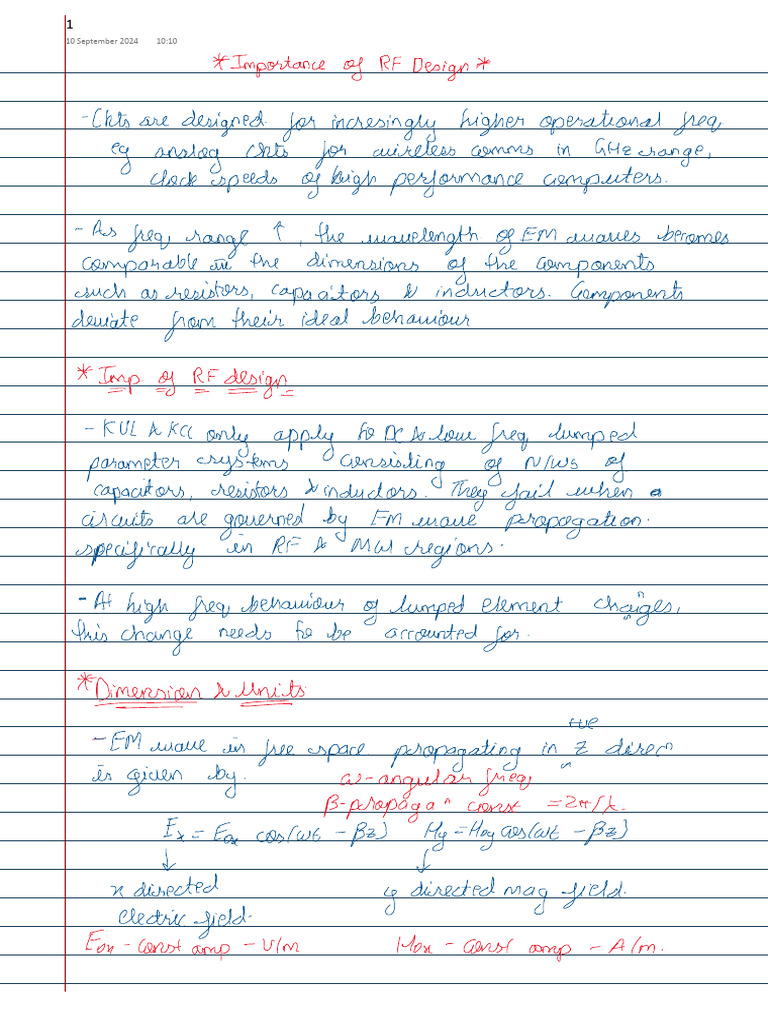 1
10 September 2024 10:10
*Importance of RF Design*
- Ckts are designed for incresingly higher operational freq
eg analog ckts for wireless comms in GHz range,
clock speeds of high performance computers.
- As freq range ↑, the wavelength of EM waves becomes
comparable in the dimensions of the components
such as resistors, capacitors & inductors. Components
deviate from their ideal behaviour
* Imp. of RF design
- KVL & KCL only apply to DC & low freq lumped
parameter systems consisting of N/Ws of
capacitors, resistors & inductors. They fail when
circuits are governed by EM wave propagation.
specifically in RF & MW regions.
- At high freq behaviour of lumped element changes,
this change needs to be accounted for.
* Dimension & Units
+ve
- EM wave in free space propagating in z direcn
is given by.
ω-angular freq
β-propagaⁿ const = 2π/λ.
Ex = Eox cos(ωt - βz) Hy = Hoy cos(ωt - βz)
↓ ↓
x directed y directed mag field.
electric field.
Eox - const amp - V/m Hox - const amp - A/m.